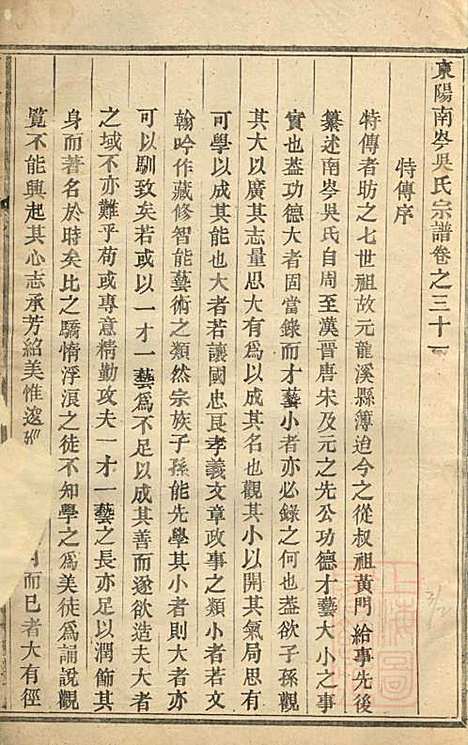 東陽南岑吳氏宗譜卷之三十一
特傳序
特傳者昉之七世祖故元龍溪縣簿迨今之從叔祖黃門給事先後
纂述南岑吳氏自周至漢晉唐宋及元之先公功德才藝大小之事
實也蓋功德大者固當錄而才藝小者亦必錄之何也蓋欲子孫觀
其大以廣其志量思大有為其名也觀其小以開其氣局思有
可學以成其能也大者若讓國忠良孝義文章政事之類小者若文
翰吟作藏修智能藝術之類然宗族子孫能先學其小者則大者亦
可以馴致矣若或以一才一藝為不足以成其善而遂欲造夫大者
之域不亦難乎苟或專意精勤攻夫一才一藝之長亦足以潤飾其
身而著名於時矣比之驕惰浮浪之徒不知學之為美徒為誦說觀
覽不能興起其心志承芳紹美惟邈
而已者大有徑